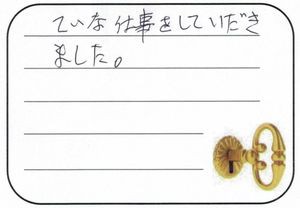 ていな仕事をしていだき
ました。